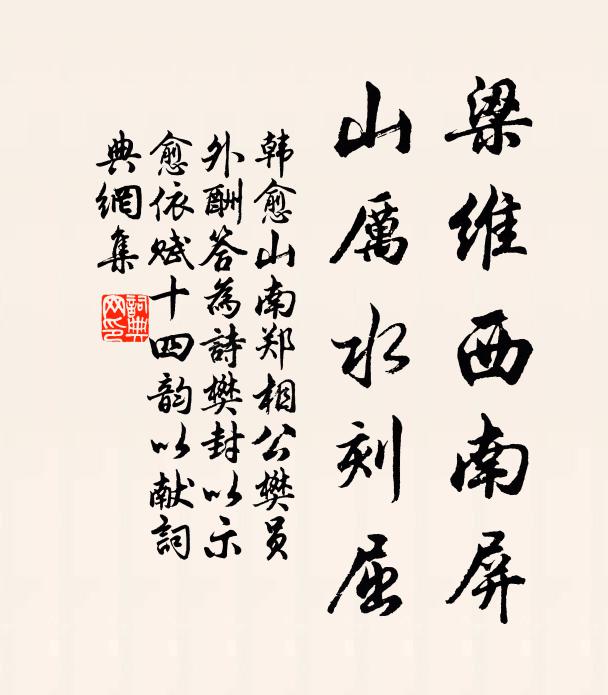 梁维西南屏
山厲水刻屈
韩愈山南郑相公樊员
外酬答為詩樊封以示
愈依赋十四韵以献詞
典網集
詞典網印